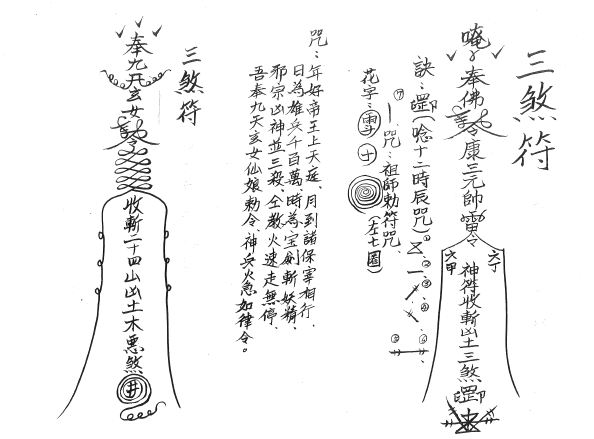 三煞符
唵奉佛敕令康三元帥雷令
六丁
六甲
神符收斬凶土三煞罡印
訣：罡印(唸十二時辰咒)
咒：祖師勅符咒、(左七圈)
花字：雷
十
① ② ③ ④ ⑤ ⑥ ⑦
咒：年好帝王上天庭、月到諸保宰相行、
日為雄兵千百萬、時為宝劍斬妖精、
邪宗凶神並三殺、仝教火速走無停、
吾奉九天玄女仙娘勅令、神兵火急如律令。
三煞符
奉九天玄女
收斬二十四山凶土木悪煞
井